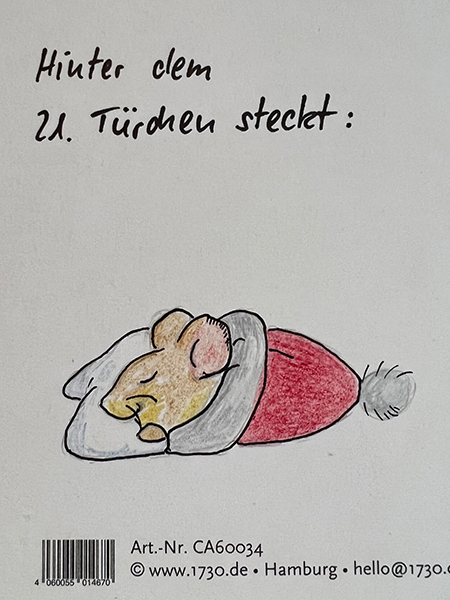 Hinter dem
21. Türchen steckt:
Art.-Nr. CA60034
© www.1730.de • Hamburg • hello@1730.
4 060055 014670